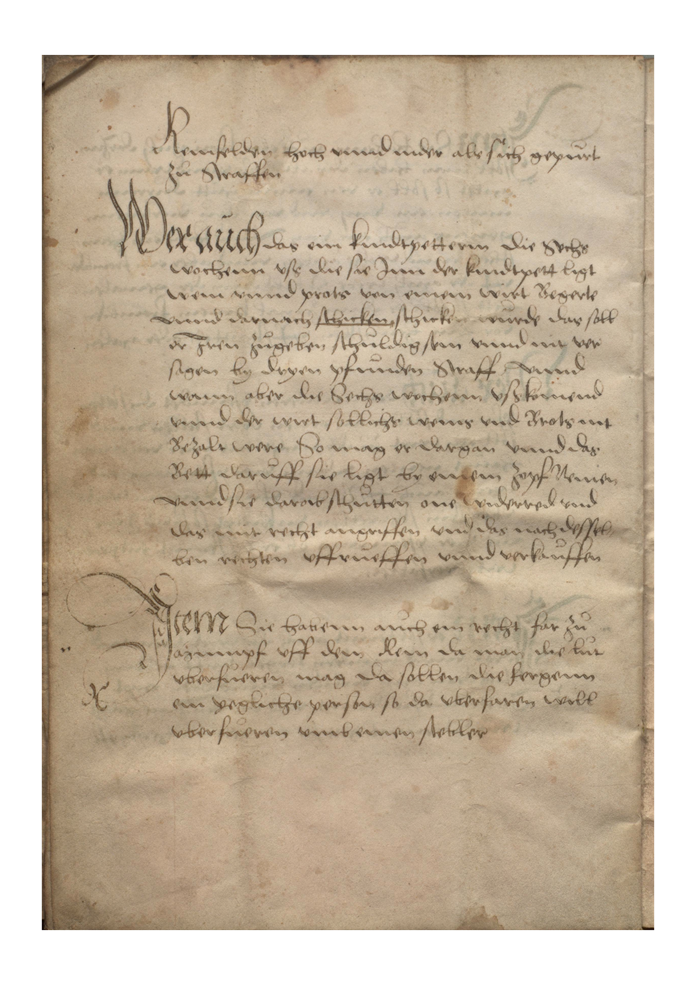 Reinfelden hoch unnd nider als sich gepürt
zů Straffen
Wer auch das ein kindtpetterin die Sechs
wochenn uss die sie Jnn der kindtpett ligt
wein unnd prots von einem wirt Begerte
unnd darnach schicken schicken wurde das soll
er Jren zůgeben schuldig sein unnd nit ver
sagen by dryen pfunden Straff Unnd
wann aber die Sechs wochenn uss komend
unnd der wirt sollichs weins und Brots nit
Bezalt were So mag er dargan unnd das
Bett daruff sie ligt by einem zopf Nemen
unnd sie darob schutten one widerred und
das mit recht angriffen und das nach dessel
ben rechten uffrueffen unnd verkauffen
Jtem Sie habenn auch ein recht far zů
uff dem Rein da man die lut
uberfueren mag da sollen die fergenn
ein yegliche person so da uberfaren will
uberfueren umb einen stebler